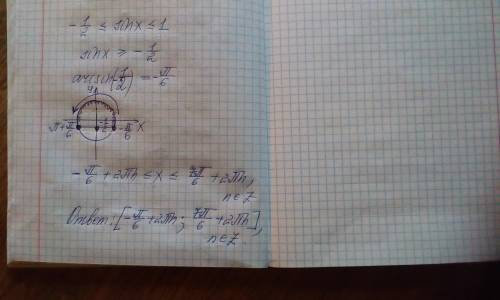 -1/2 ≤ sinx ≤ 1
sinx ≥ -1/2
arcsin(-1/2) = -π/6
y
π+π/6 -1/2 -π/6 x
-π/6 + 2πn ≤ x ≤ 7π/6 + 2πn,
n∈Z
Ответ: [-π/6 + 2πn; 7π/6 + 2πn],
n∈Z